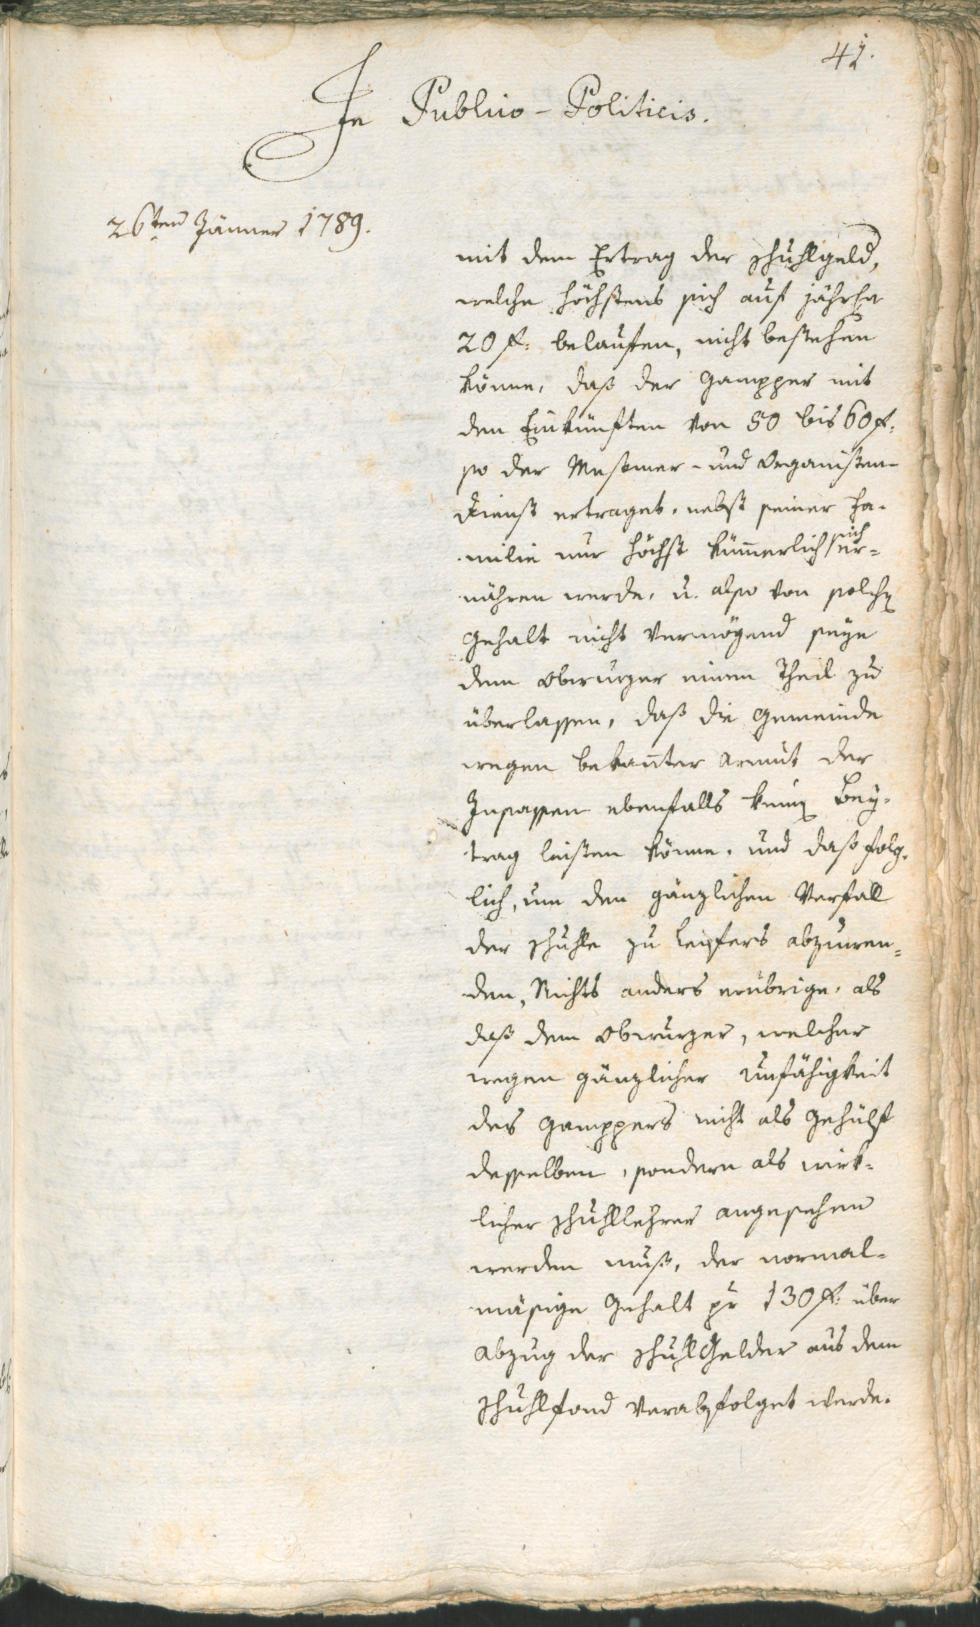 42.
In Publico-Politicis.
26ten Jänner 1789.
mit dem Ertrag der Schuhlgeld,
welche höchstens sich auf jährlich
20 f: belaufen, nicht bestehen
könne, daß der Gampper mit
den Einkünften von 50 bis 60 f:
so der Messmer- und Organisten-
dienst ertraget, nebst seiner Fa-
milie nur höchst kümerlich sich er-
nähren werde, u. also von solchen
Gehalt nicht vermögend seye
dem Obwurzer einen Theil zu
überlassen, daß die Gemeinde
wegen bekanter Armut der
Insassen ebenfalls keinen Bey-
trag leisten könne, und daß folg-
lich, um den gänzlichen Verfall
der Schuhle zu Leifers abzuwen-
den, Nichts anders erübrige, als
daß dem Obwurzer, welcher
wegen gänzlicher Unfähigkeit
des Gamppers nicht als Gehülf
desselben, sondern als wirk-
licher Schuhllehrer angesehen
werden muß, der normal-
mäsige Gehalt pr 130 f: über
Abzug der Schuhlgelder aus dem
Schuhlfond verabfolget werde.